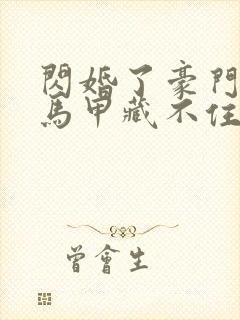 閃婚了豪門
馬甲藏不住
曾會生